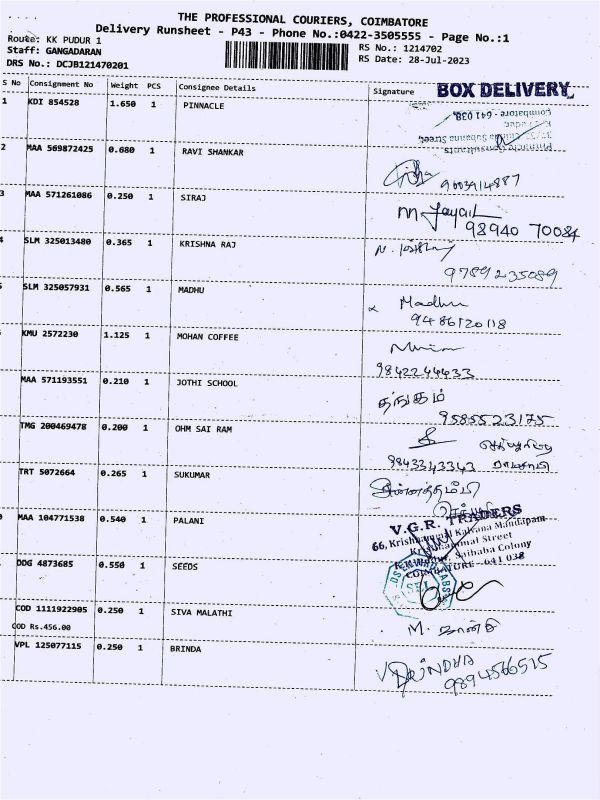 THE PROFESSIONAL COURIERS, COIMBATORE
Delivery Runsheet - P43 - Phone No.:0422-3505555 - Page No.:1
Route: KK PUDUR 1
Staff: GANGADARAN
DRS No.: DCJB121470201
RS No.: 1214702
RS Date: 28-Jul-2023
S No Consignment No Weight PCS Consignee Details Signature BOX DELIVERY
1 KDI 854528 1.650 1 PINNACLE
Pinnacle Consultants
Coimbatore - 641 038.
2 MAA 569872425 0.680 1 RAVI SHANKAR
9003914887
3 MAA 571261086 0.250 1 SIRAJ
98940 70084
4 SLM 325013480 0.365 1 KRISHNA RAJ
9789235089
SLM 325057931 0.565 1 MADHU
x Madhu
9486120118
KMU 2572230 1.125 1 MOHAN COFFEE
9842244433
MAA 571193551 0.210 1 JOTHI SCHOOL
தங்கம்
9585523175
TMG 200469478 0.200 1 OHM SAI RAM
9843343343
TRT 5072664 0.265 1 SUKUMAR
சின்னத்தம்பி
MAA 104771538 0.540 1 PALANI
V.G.R. TRADERS
66, Krishnammal Kalyana Mandapam
Krishnammal Street
Saibaba Colony
COIMBATORE - 641 038
DDG 4873685 0.550 1 SEEDS
COD 1111922905 0.250 1 SIVA MALATHI
COD Rs.456.00
M. சாந்தி
VPL 125077115 0.250 1 BRINDA
V BRINDHA
9894566515